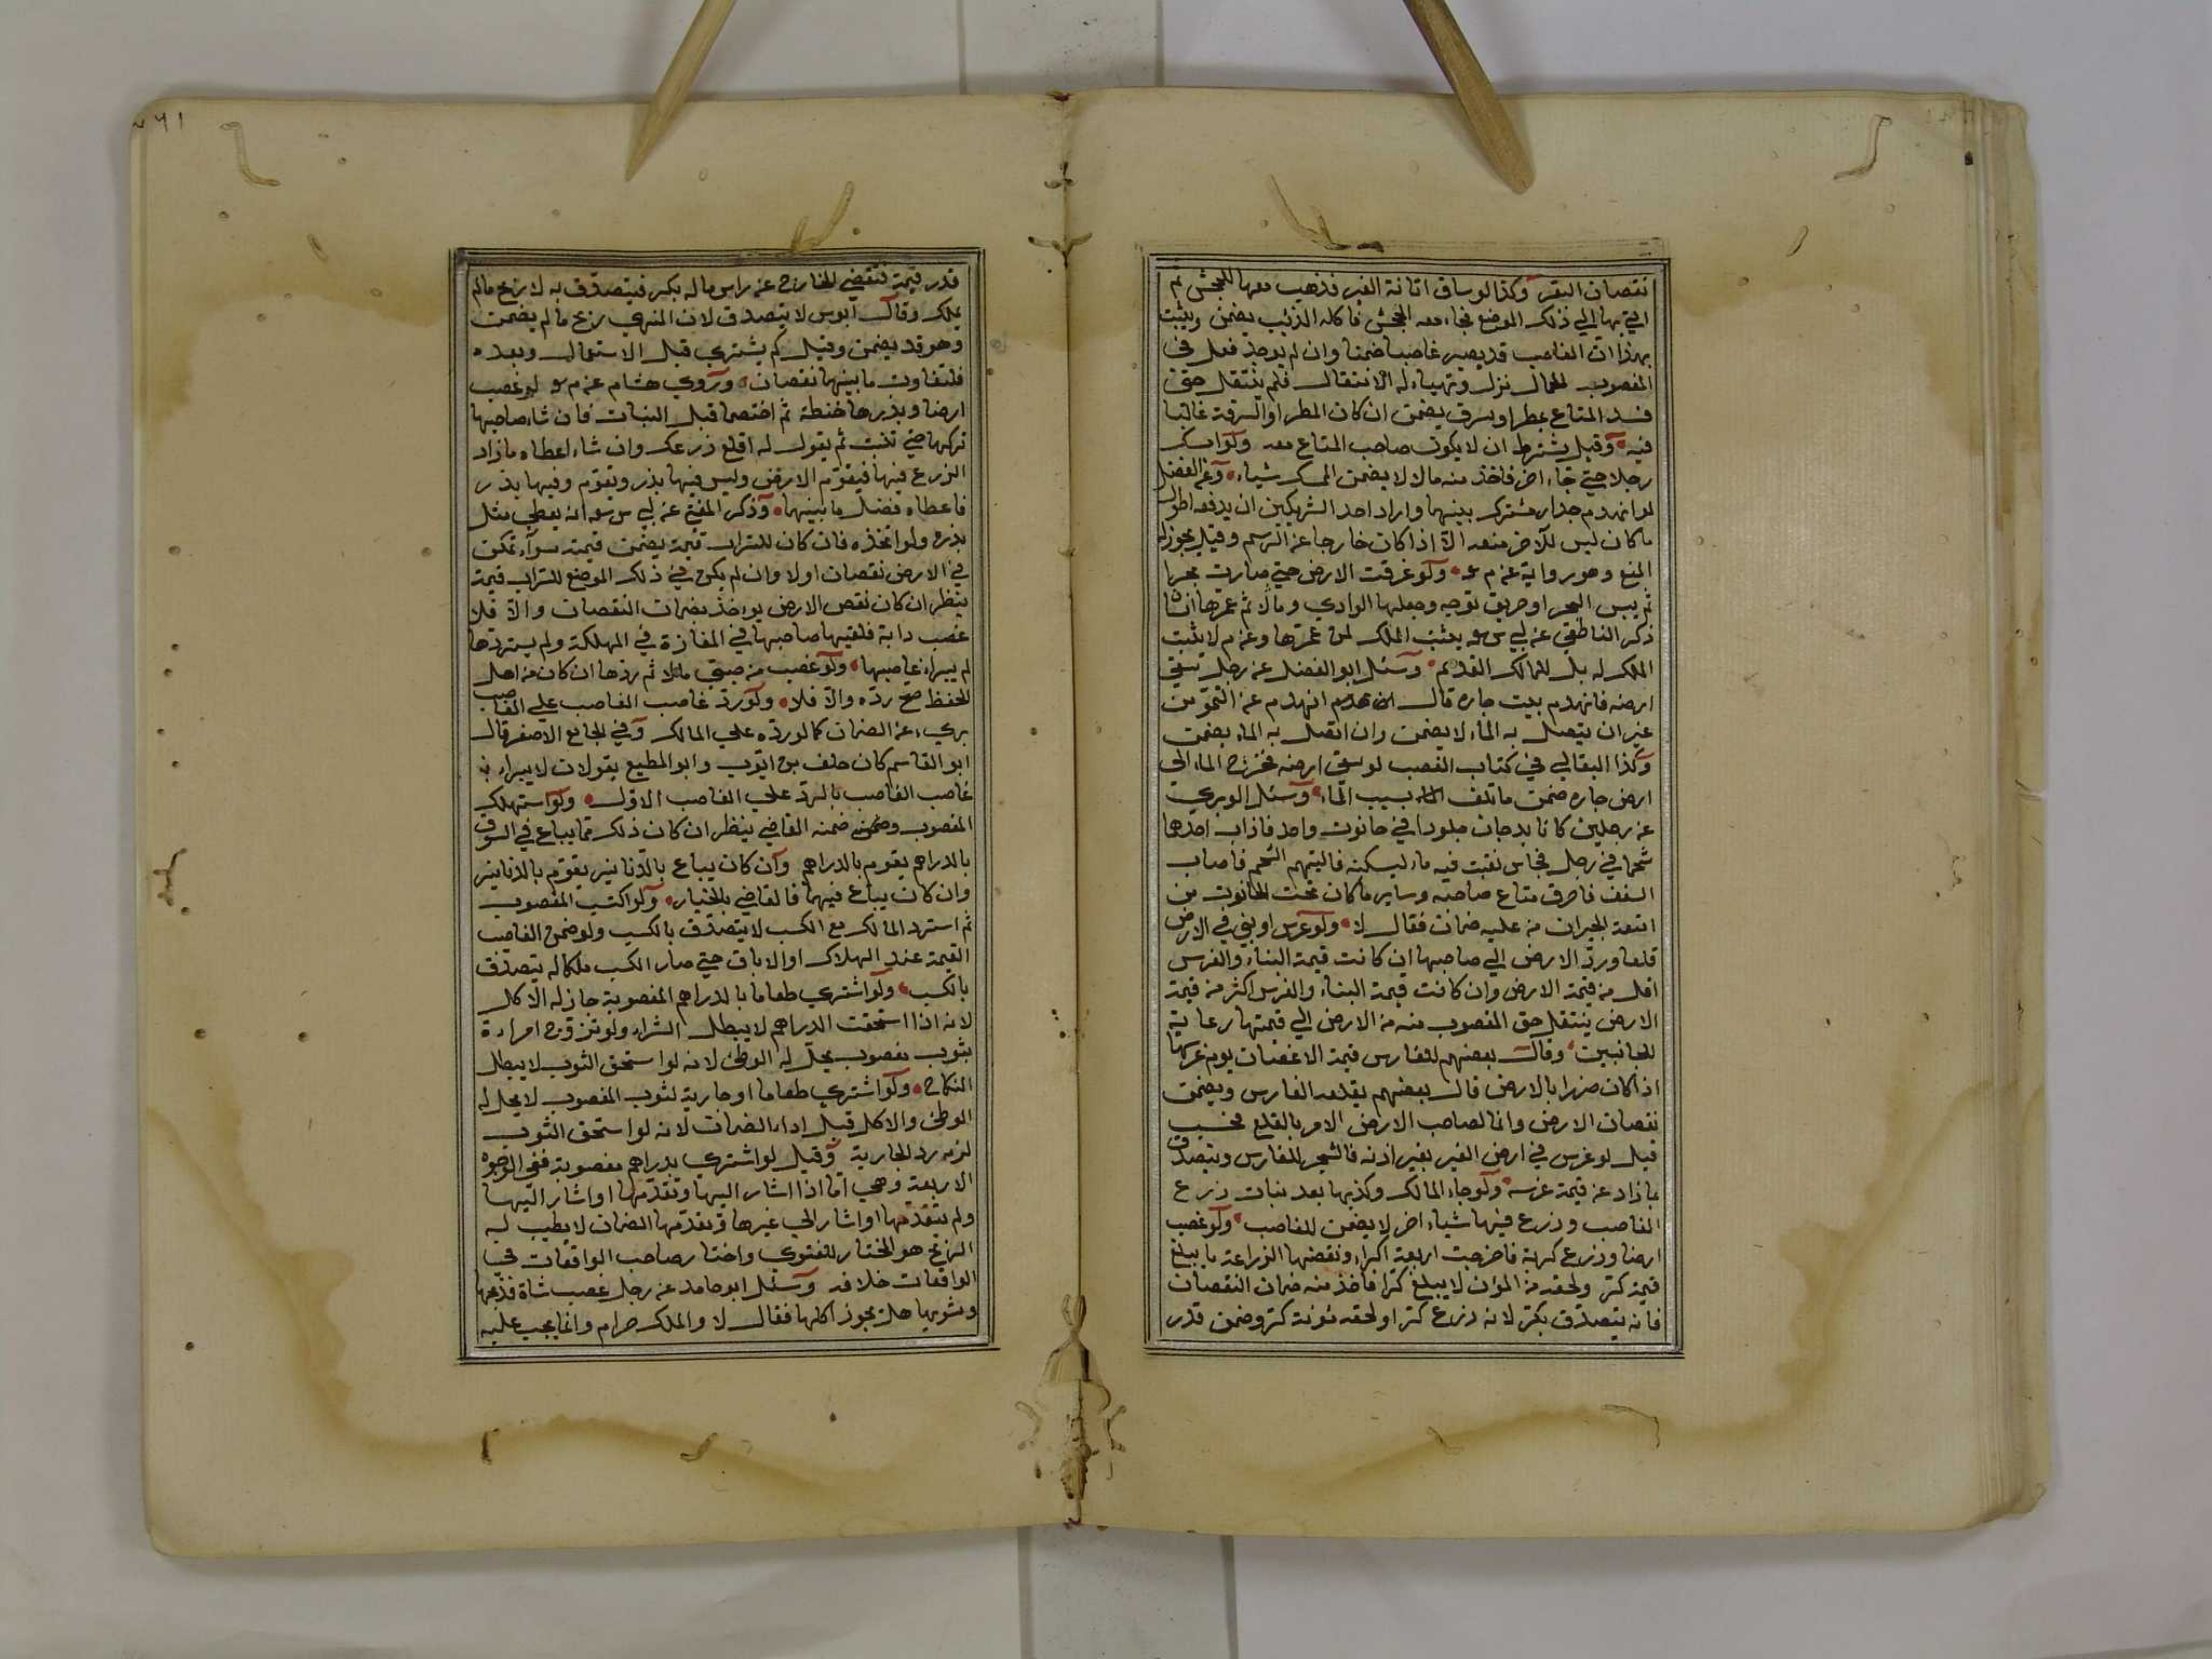 نقصان البقر وكذا لو ساق اتانة الغير فذهب معها الجحش ثم
اتي بها الي ذلك الموضع فجاء معه الجحش فاكله الذئب يضمن ويثبت
بهذا ان الغاصب قد يصير غاصبا ضمنا وان لم يوجد فعل في
المغصوب الحمال نزل وتهياء له الانتقال فلم ينتقل حتى
فسد المتاع بمطر او سرق يضمن ان كان المطر او السرقة غالبا
فيه وقيل يشترط ان لا يكون صاحب المتاع معه ولو امسك
رجلا حتي جاء اخر فاخذ منه مالا لا يضمن الممسك شياء وعن الفضل
لو انهدم جدار مشترك بينهما واراد احد الشريكين ان يدفعه اطول
ما كان ليس للآخر منعه الا اذا كان خارجا عن الرسم وقيل يجوز له
المنع وهو رواية عن م ولو غرقت الارض حتي صارت بحرا
ثم يبس البحر او حريق توجه وجعلها الوادي ومالا ثم عمرها انسان
ذكر الناطفي عن ابي س يثبت الملك لمن عمرها وعن م لا يثبت
الملك له بل للمالك القديم وسئل ابو الفضل عن رجل سقي
ارضه فانهدم بيت جاره قال ان انهدم عن النمو من
غير ان يتصل به الماء لا يضمن وان اتصل به الماء يضمن
وكذا البقالي في كتاب الغصب لو سقي ارضه فخرج الماء الى
ارض جاره ضمن ما تلف بسبب الماء وسئل الوبري
عن رجلين كانا يدبغان جلودا في حانوت واحد فاذاب احدهما
شحما في رجل نحاس نقبت فيه ماء ليسكنه فالتهم الشحم فاصاب
السقف فاحرق متاع صاحبه وساير ما كان تحت الحانوت من
امتعة الجيران من عليه ضمان فقال لا ولو غرس او بنى في الارض
قلعا ورد الارض الي صاحبها ان كانت قيمة البناء والغرس
اقل من قيمة الارض وان كانت قيمة البناء والغرس اكثر من قيمة
الارض ينتقل حق المغصوب منه من الارض الي قيمتها رعاية
للجانبين وقال بعضهم للغارس قيمة الاغصان يوم غرسها
اذا كان ضررا بالارض قال بعضهم يقلعه الغارس ويضمن
نقصان الارض وانما لصاحب الارض الامر بالقلع فحسب
قيل لو غرس في ارض الغير بغير اذنه فالشجر للغارس ويتصدق
بما زاد عن قيمة غرسه ولو جاء المالك وكذبها بعد نبات زرع
الغاصب وزرع فيها شياء اخر لا يضمن للغاصب ولو غصب
ارضا وزرع كر بة فاخرجت اربعة اكرار ونقصها الزراعة ما يبلغ
قيمة كر ولحقه من المؤن لا يبلغ كرا فاخذ منه ضمان النقصان
فانه يتصدق بكر لانه زرع كرا ولحقه مئونة كر وضمن قدر
قدر قيمة فيقضي الخارج عن راس ماله بكر فيتصدق به لا ربح مالم
يملك وقال ابوس لا يتصدق لان المنهي ربح ما لم يضمن
وهو قد يضمن وقيل كم يشتري قبل الاستعمال وبعده
فلتفاوت ما بينهما نقصان وروي هشام عن م لو غصب
ارضا وبذرها حنطة ثم اختصما قبل النبات فان شاء صاحبها
تركها حتي تنبت ثم يقول له اقلع زرعك وان شاء اعطاه ما زاد
الزرع فيها فيقوم الارض وليس فيها بذر ويقوم وفيها بذر
فاعطاه فضل ما بينهما وذكر المفتي عن ابي س انه يعطي مثل
بذره ولو اتخذه فان كان للتراب قيمة يضمن قيمته سواء تمكن
في الارض نقصان او لا وان لم يكن في ذلك الموضع للتراب قيمة
ينظر ان كان نقص الارض يواخذ بضمان النقصان والا فلا
غصب دابة فلقيها صاحبها في المفازة في المهلكة ولم يستردها
لم يبراء غاصبها ولو غصب من صبي مالا ثم ردها ان كان من اهل
الحفظ صح رده والا فلا ولو رد غاصب الغاصب علي الغاصب
بريء عن الضمان كما لو رده علي المالك وفي الجامع الاصغر قال
ابو القاسم كان خلف بن ايوب وابو المطيع يقولان لا يبراء
غاصب الغاصب بالرد على الغاصب الاول ولو استهلك
المغصوب ضمنه القاضي ينظر ان كان ذلك مما يباع في السوق
بالدراهم يقوم بالدراهم وان كان يباع بالدنانير يقوم بالدنانير
وان كان يباع فيهما فالقاضي بالخيار ولو اكتسب المغصوب
ثم استرد المالك مع الكسب لا يتصدق بالكسب ولو ضمن الغاصب
القيمة عند الهلاك او الاباق حتي صار الكسب ملكا له يتصدق
بالكسب ولو اشتري طعاما بالدراهم المغصوبة جاز له الاكل
لانه اذا استحقت الدراهم لا يبطل الشراء ولو تزوج امراءة
بثوب مغصوب يحل له الوطئ لانه لو استحق الثوب لا يبطل
النكاح ولو اشتري طعاما او جارية لثوب المغصوب لا يحل له
الوطئ والاكل قبل اداء الضمان لانه لو استحق الثوب
لزمه رد الجارية وقيل لو اشتري بدراهم مغصوبة ففي الوجوه
الاربعة وهي اما اذا اشار اليها وتقدمها او اشار اليها
ولم يتقدمها او اشار الى غيرها وتقدمها الضمان لا يطيب له
الربح هو المختار للفتوي واختار صاحب الواقعات في
الواقعات خلافه وسئل ابو حامد عن رجل غصب شاة فذبحها
وشويها هل يجوز اكلها فقال لا والملك حرام وانما يجب عليه